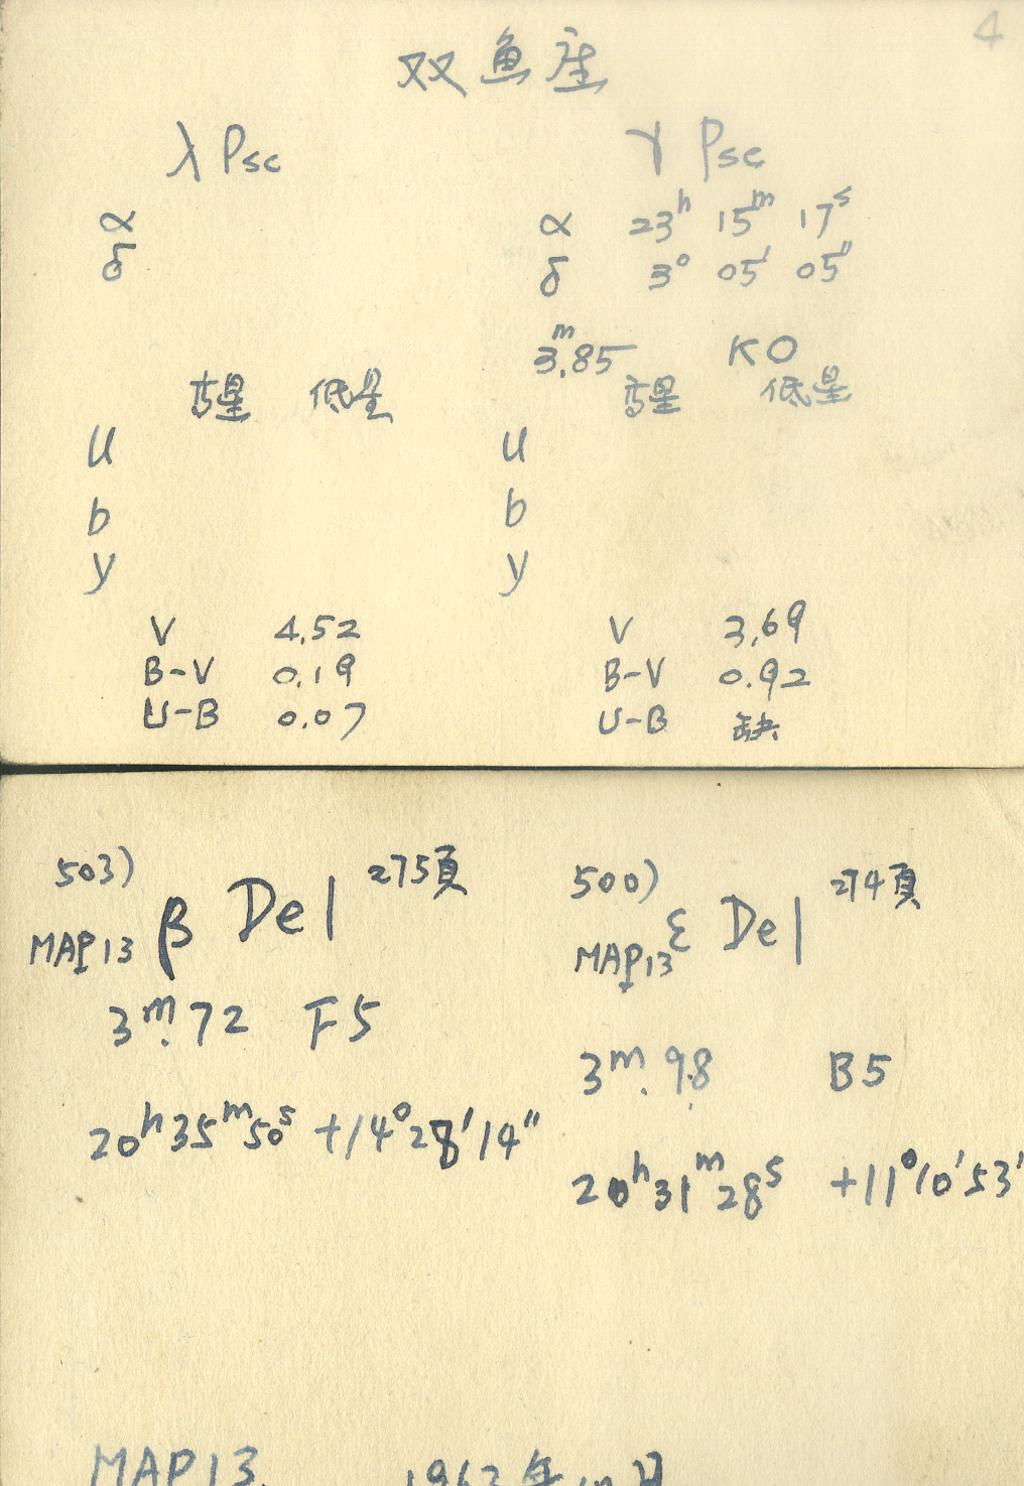 4
双魚座
λ Psc
α
δ
高星 低星
u
b
y
V 4.52
B-V 0.19
U-B 0.07
γ Psc
α 23h 15m 17s
δ 3° 05' 05"
3.m85 K0
高星 低星
u
b
y
V 3.69
B-V 0.92
U-B 缺
503) 275頁
MAP13 β Del
3m.72 F5
20h35m50s +14°28'14"
500) 274頁
MAP13 ε Del
3m.98 B5
20h31m28s +11°10'53'
MAP13.